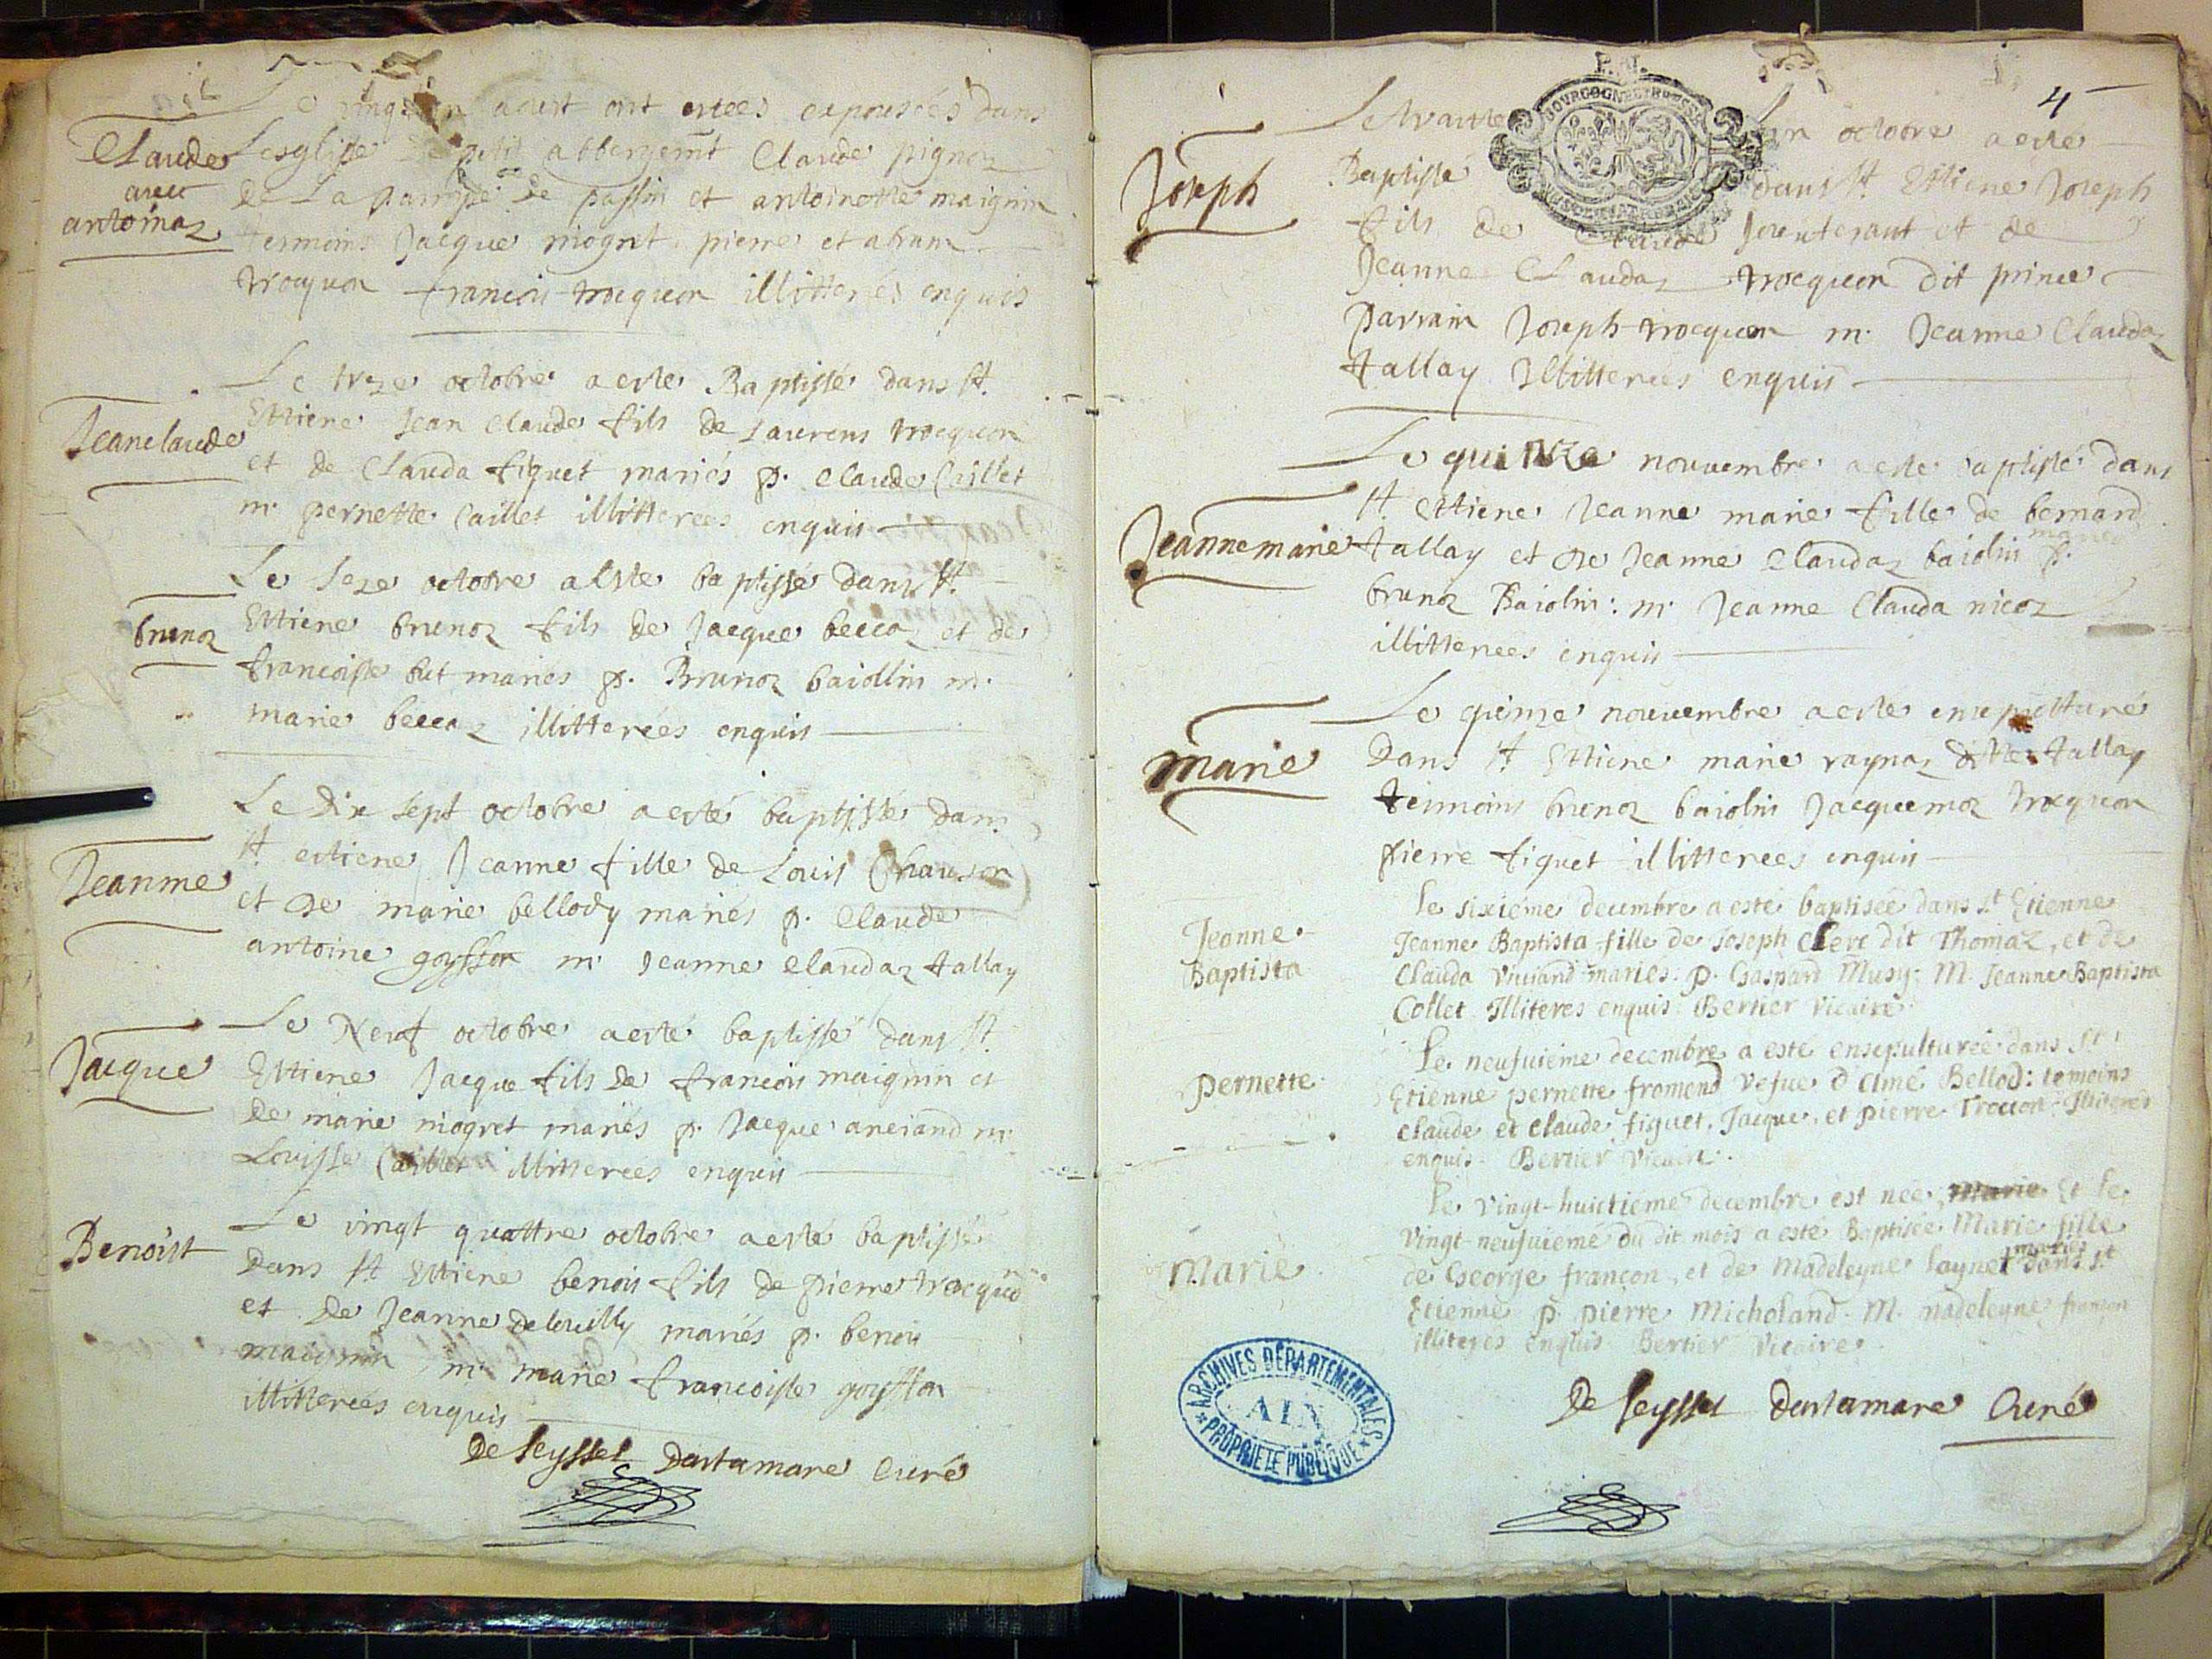 Claude
avec
antoinaz
aoust ont estees expousées dans
Lesglisse de petit abbergemt Claude pignon
De La parroisse de passin et antoinette maignin
tesmoins Jacque niogret pierre et abram
trocquon francois trocquon illitterés enquis
Jeanclaude
Le treze octobre a este Baptissé dans st
Ettiene Jean Claude fils de Laurens trocquon
et de Clauda figuet mariés p. Claude Caillet
m. pernette Caillet illitterees enquis
brunoz
Le seze octobre a este baptissé dans st
Ettiene brunoz fils de Jacque beccaz et de
francoisse but mariés p. Brunoz baiollin m.
marie beccaz illitterées enquis
Jeanne
Le Dix sept octobre a esté baptissée dans
st estiene Jeanne fille de Louis Chauson
et de marie bellody mariés p. Claude
antoine goysson m. Jeanne Claudaz tallay
Jacque
Le Neuf octobre a esté baptissé dans st
Ettiene Jacque fils de francois maignin et
De marie niogret mariés p. Jacque anciand m.
Louisse Caillet illitterées enquis
Benoist
Le vingt quattre octobre a esté baptissé
Dans st Ettiene benois fils de pierre trocquō
et de Jeanne delouilly mariés p. benois
maignin m. marie francoisse goysson
illitterées enquis
De Seyssel Dartamare Curé
4
BOURGOGNE ET BRESSE
Joseph
Le trante un octobre a esté
Baptissé dans st Ettiene Joseph
fils de Claude et de
Jeanne Claudaz trocquon dit prince
parrain Joseph trocquon m. Jeanne Claudaz
tallay Illitterées enquis
Jeannemarie
Le quinze nouvembre a este baptissé dans
st estiene Jeanne marie fille de bernard
mariés
tallay et de Jeanne Claudaz baiolin p.
brunoz Baiolin: m. Jeanne Clauda nicoz
illitterées enquis
marie
Le quinze nouvembre a esté ensepulturé
Dans st Ettiene marie raynaz ditte tallay
tesmoins brunoz baiolin Jacquemoz trocquon
pierre figuet illitterées enquis
Jeanne
Baptista
Le sixième decembre a esté baptisée dans st Etienne
Jeanne Baptista fille de Joseph Clerc dit Thomaz, et de
Clauda Viviand mariés. p. Gaspard Musy. M. Jeanne Baptista
Collet Illiteres enquis Bertier Vicaire
pernette
Le neufuiéme decembre a esté ensepulturée dans st
Etienne pernette fromend vefue d'Amé Bellod: temoins
claude et claude figuet, Jacque, et pierre Trocon Illiterés
enquis. Bertier Vicaire.
Marie
Le vingt-huictieme decembre est née Marie Et le
Vingt-neufuieme du dit mois a esté Baptisée Marie fille
mariés
de George françon, et de Madeleyne Laynet dans st
Etienne p. pierre Micholand. M. madeleyne françon
illiteres enquis Bertier Vicaire
De Seyssel Dartamare Curé
ARCHIVES DÉPARTEMENTALES
AIN
PROPRIÉTÉ PUBLIQUE